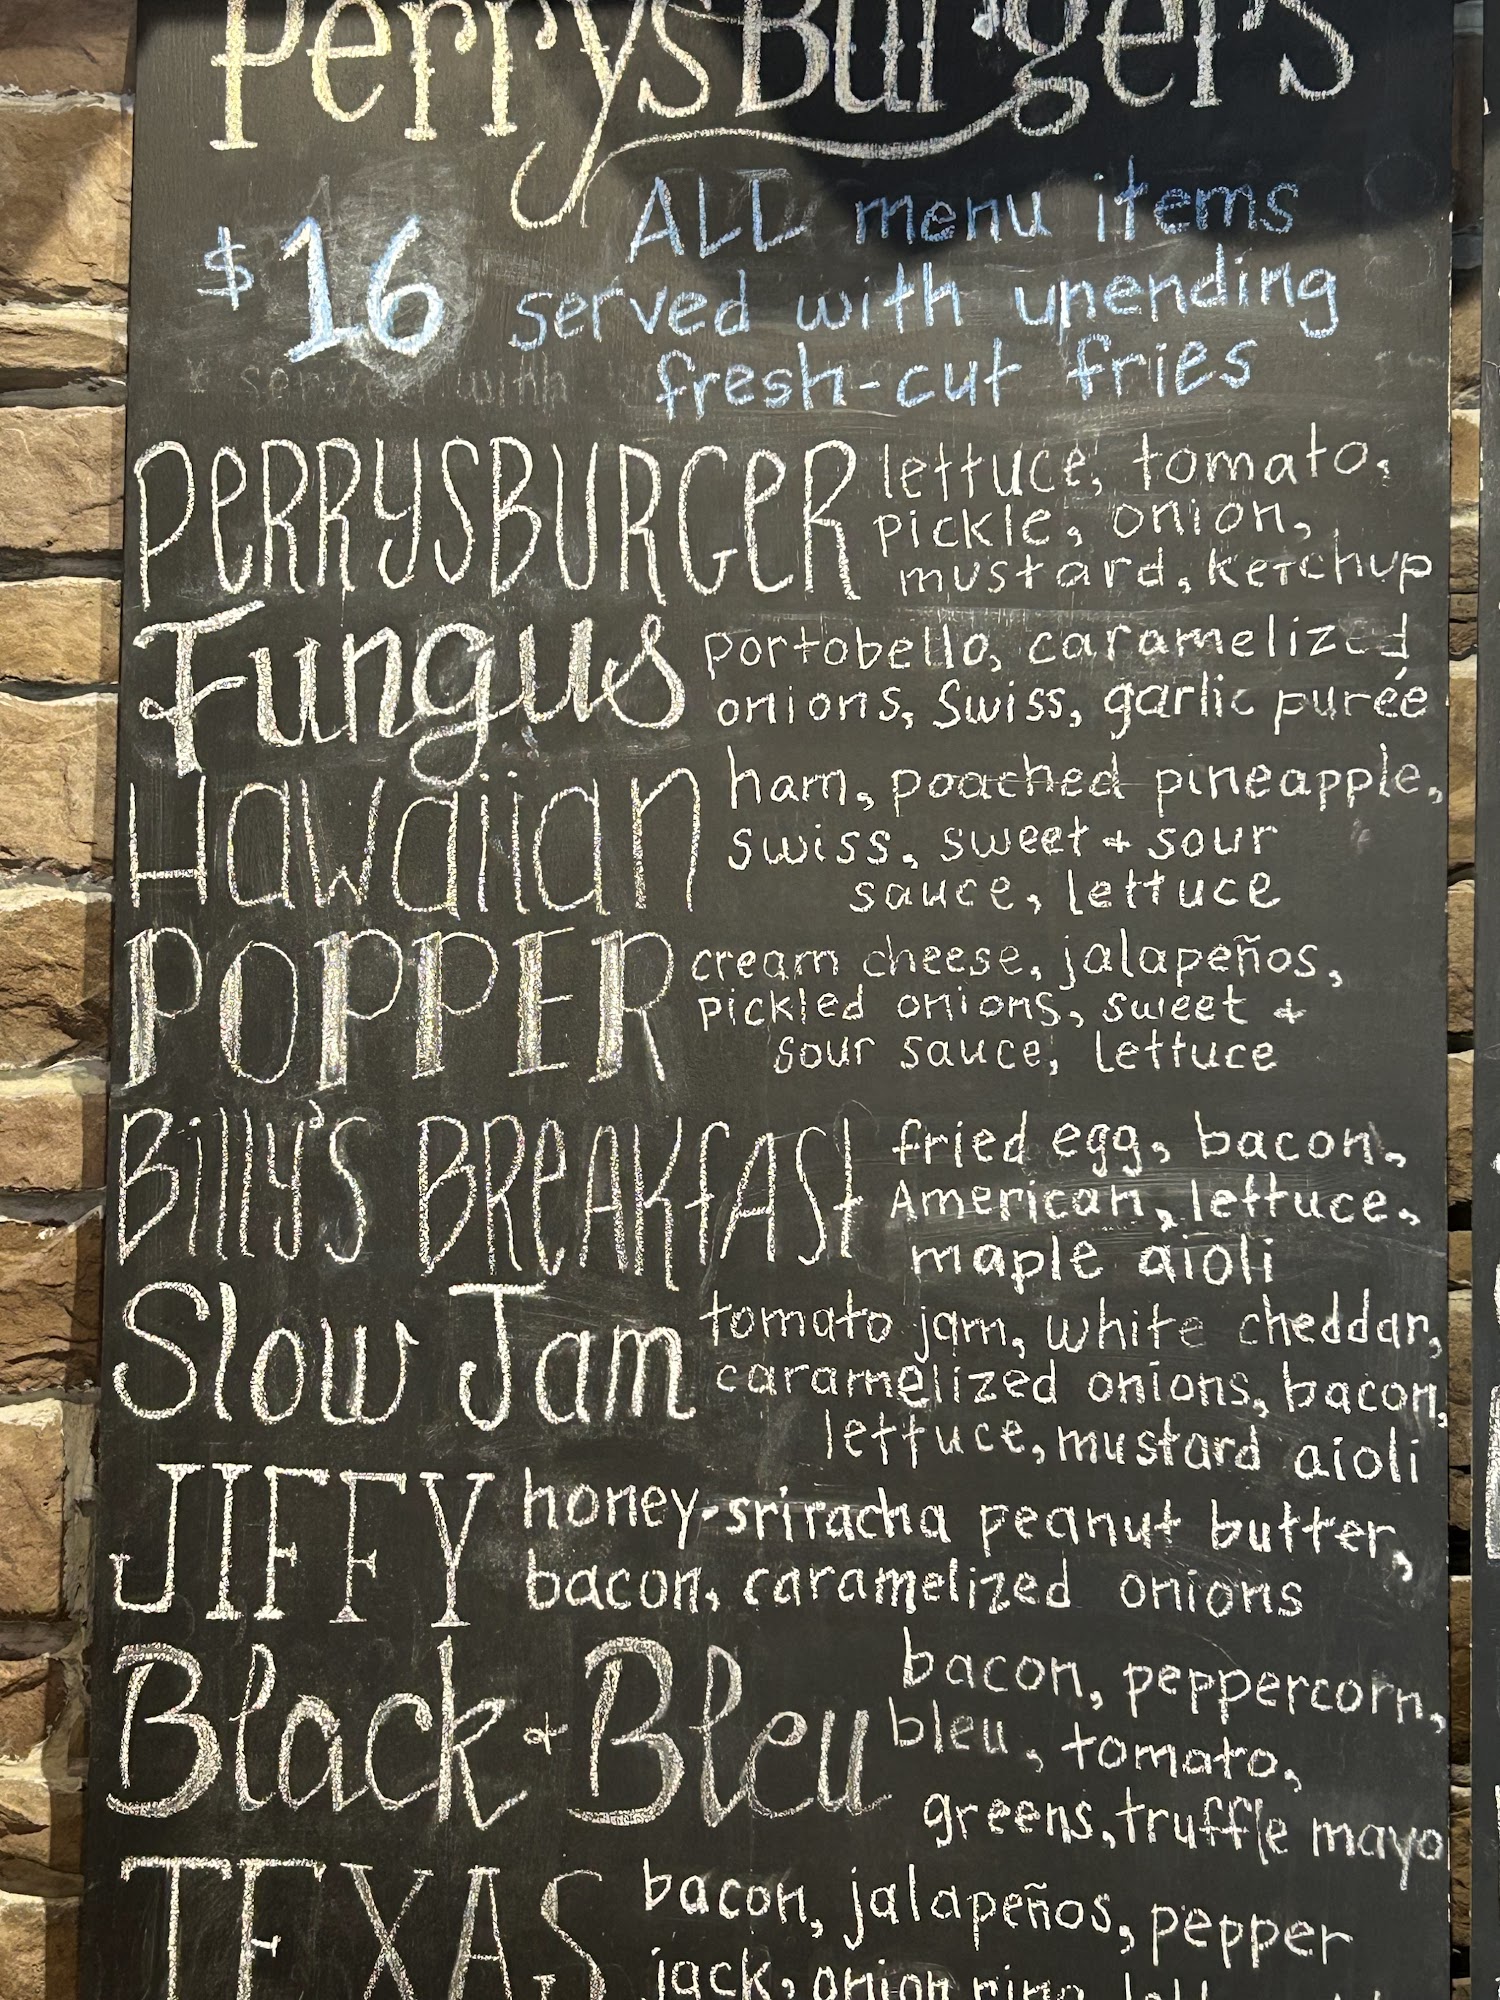 Perrys Burgers
$16
ALL menu items
served with unending
fresh-cut fries
PERRYSBURGER
lettuce, tomato,
pickle, onion,
mustard, ketchup
Fungus
portobello, caramelized
onions, Swiss, garlic purée
Hawaiian
ham, poached pineapple,
swiss, sweet + sour
sauce, lettuce
POPPER
cream cheese, jalapeños,
pickled onions, sweet +
sour sauce, lettuce
Billy's BREAKFAST
fried egg, bacon,
American, lettuce,
maple aioli
Slow Jam
tomato jam, white cheddar,
caramelized onions, bacon,
lettuce, mustard aioli
JIFFY
honey-sriracha peanut butter,
bacon, caramelized onions
Black + Bleu
bacon, peppercorn,
bleu, tomato,
greens, truffle mayo
TEXAS
bacon, jalapeños, pepper
jack, onion ring,